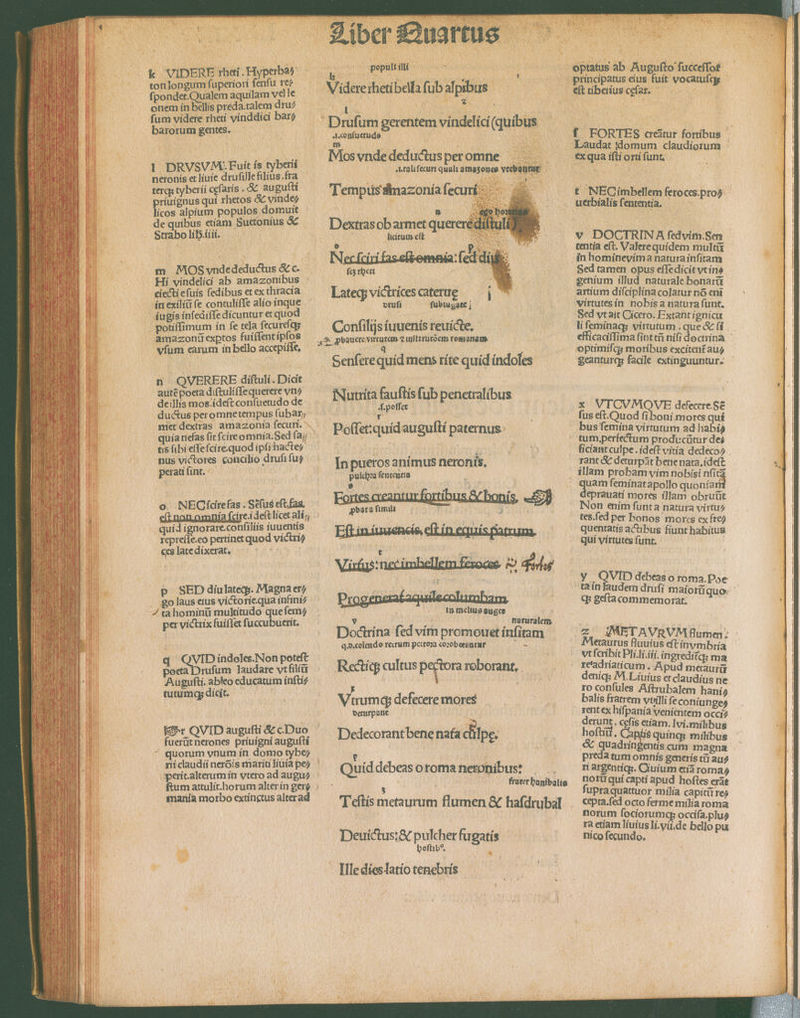 Liber Quartus
k VIDERE rheti. Hyperba
ton longum superiori sensu re
spondet. Qualem aquilam vel le
onem in bellis preda. talem dru
sum videre rheti vinddici bar
barorum gentes.
l DRVSVM. Fuit is tyberii
neronis et liuie drusille filius. fra
terq; tyberii cęsaris. & augusti
priuignus qui rhetos & vinde
licos alpium populos domuit
de quibus etiam Suetonius &
Strabo lib. iiii.
m MOS vnde deductus &c.
Hi vindelici ab amazonibus
eiecti e suis sedibus et ex thracia
in exiliū se contulisse alio inque
iugis insedisse dicuntur et quod
potissimum in se tela securesq;
amazonū exptos fuissent ipsos
vsum earum in bello accepisse.
n QVERERE distuli. Dicit
autē poeta distulisse querere vn
de illis mos. idest consuetudo de
ductus per omne tempus subar
met dextras amazonia securi.
quia nefas sit scire omnia. Sed sa
tis sibi esse scire. quod ipsi hacte
nus victores concilio drusi su
perati sunt.
o NEC scire fas. Sēsus est. fas.
est non omnia scire. i dest licet ali
quid ignorare. consiliis iuuentis
repressę. eo pertinet quod victri
ces late dixerat.
p SED diu lateq;. Magna er
go laus eius victorie. qua infini
ta hominū multitudo que sem
per victrix fuisset succubuerit.
q QVID indoles. Non potest
poeta Drusum laudare vt filiū
Augusti. ab eo educatum insti
tutumq; dicit.
r QVID augusti &c. Duo
fuerūt nerones priuigni augusti
quorum vnum in domo tybe
rii claudii nerōis mariti liuia pe
perit. alterum in vtero ad augu
stum attulit. horum alter in ger
mania morbo extinctus alter ad
populi illi
k
Videre rheti bella sub alpibus
l
Drusum gerentem vindelici (quibus
.i. consuetudo
m
Mos vnde deductus per omne
.i. tali securi quali amazones vtebantur
Tempus amazonia securi
n ego horatius
Dextras ob armet querere distuli)
licitum est
o p
Nec sciri fas est omnia: sed diu
scz rheti
Lateq; victrices caterue
drusi subiugate
Consilijs iuuenis reuicte.
phauere virtutem & instrutōem romanam
q
Sensere quid mens rite quid indoles
Nutrita faustis sub penetralibus
.s. posset
r
Posset: quid augusti paternus
In pueros animus neronis.
pulchra sententia
s
Fortes creantur fortibus & bonis,
phat a simili
Est in iuuencis, est in equis patrum
t
Virtus: nec imbellem feroces
Progenerat aquile columbam
in melius auget
v naturalem
Doctrina sed vim promouet insitam
q.d. colendo rerum pectora corroborantur
Rectiq; cultus pectora roborant,
x
Vtrumq; defecere mores
deturpant
Dedecorant bene nata culpę.
y
Quid debeas o roma neronibus:
frater hanibalis
z
Testis metaurum flumen & hasdrubal
Deuictus: & pulcher fugatis
hostibº.
Ille dies latio tenebris
optatus ab Augusto successor
principatus eius fuit vocatusq;
est tiberius cęsar.
s FORTES creātur fortibus
Laudat domum claudiorum
ex qua isti orti sunt.
t NEC imbellem feroces. pro
uerbialis sententia.
v DOCTRINA sed vim. Sen
tentia est. Valere quidem multū
in homine vim a natura insitam
Sed tamen opus esse dicit vt in
genium illud naturale bonarū
artium disciplina colatur nō eni
virtutes in nobis a natura sunt.
Sed vt ait Cicero. Extant ignicu
li seminaq; virtutum. que & si
efficacissima sint tū nisi doctrina
optimisq; moribus excitent au
geanturq; facile extinguuntur.
x VTCVMQVE defecere. Sē
sus est. Quod si boni mores qui
bus semina virtutum ad habi
tum, perfectum producūtur de
ficiant culpe. idest vitia dedeco
rant & deturpāt bene nata. idest
illam probam vim nobis insitā
quam seminat apollo quoniam
deprauati mores illam obruūt
Non enim sunt a natura virtu
tes. sed per bonos mores ex fre
quentatis actibus fiunt habitus
qui virtutes sunt.
y QVID debeas o roma. Poe
ta in laudem drusi maiorū quo
q; gesta commemorat.
z METAVRVM flumen.
Metaurus fluuius est in vmbria
vt scribit Pli. li. iii. ingreditq; ma
re adriaticum. Apud metaurū
deniq; M. Liuius et claudius ne
ro consules Astrubalem hani
balis fratrem vt illi se coniunge
rent ex hispania venientem occi
derunt. cęsis etiam. lvi. milibus
hostiū. Captis quinq; milibus
& quadringentis cum magna
preda tum omnis generis tū au
ri argentiq;. Ciuium etiā roma
norū qui capti apud hostes erāt
supra quattuor milia capitū re
cepta. sed octo ferme milia roma
norum sociorumq; occisa. plu
ra etiam liuius li. vii. de bello pu
nico secundo.